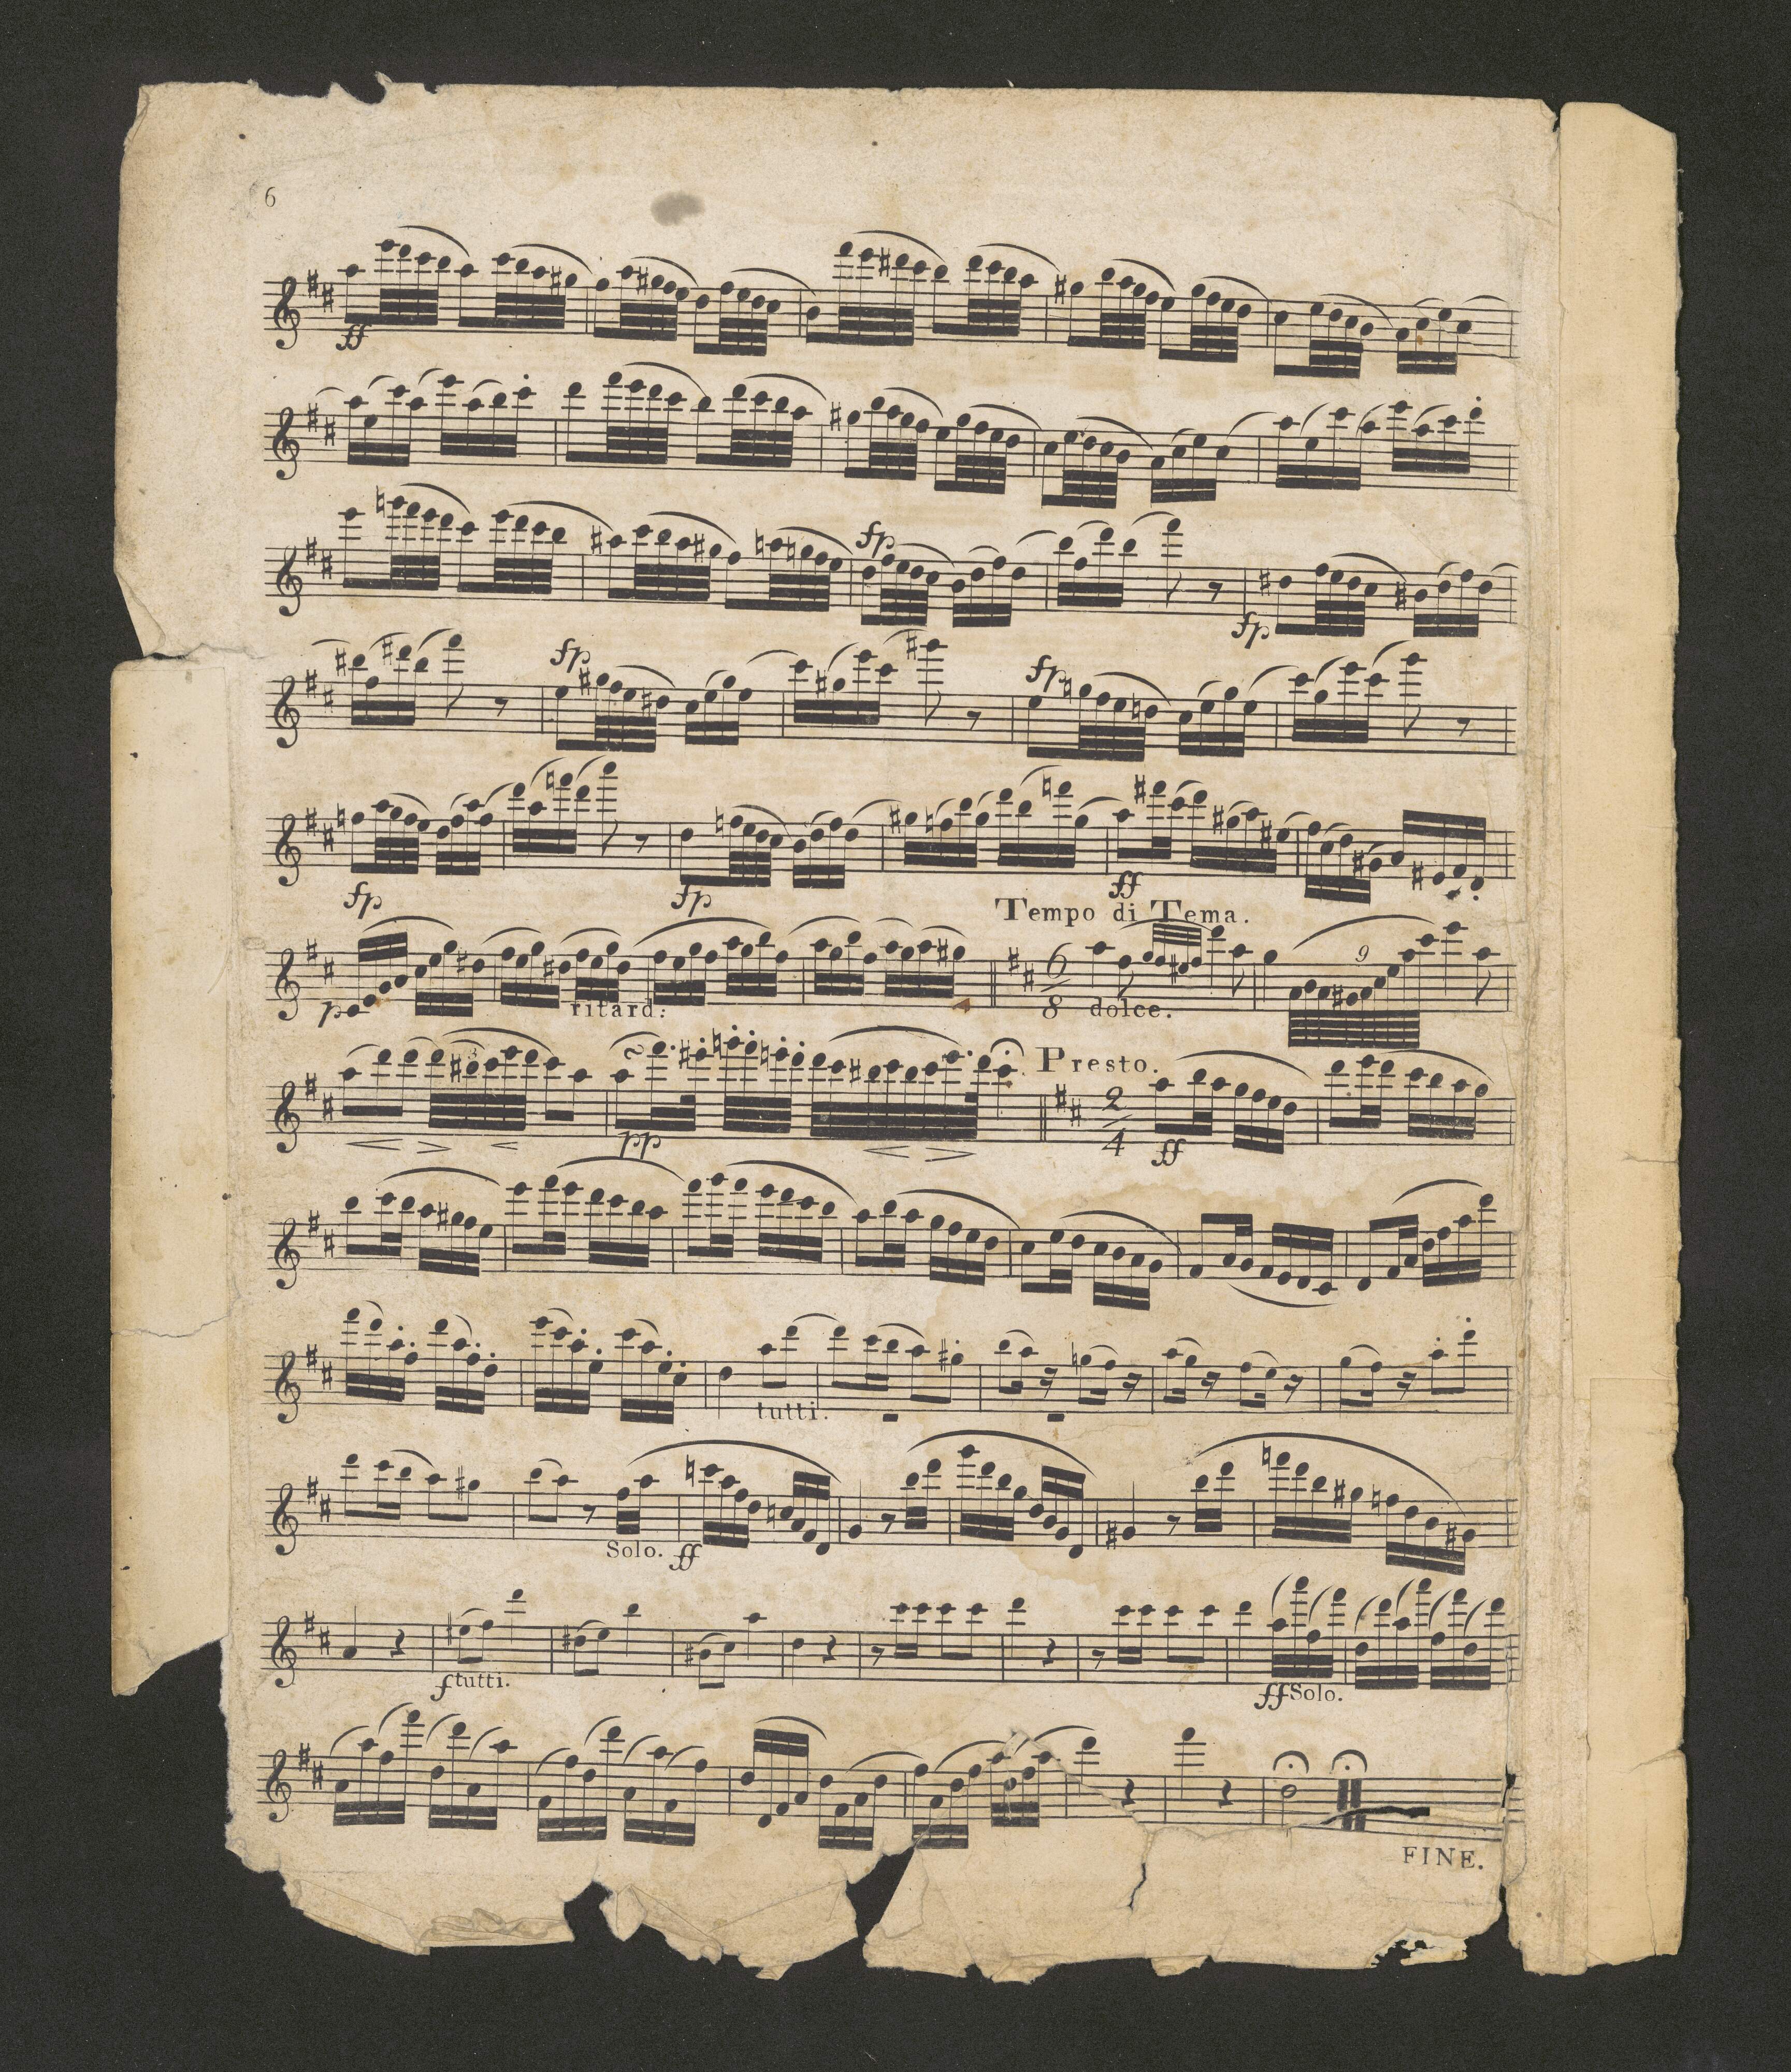 6
ff
fp
fp
fp
fp
fp
fp
ff
Tempo di Tema.
9
p ritard: 6/8 dolce.
3
Presto.
2/4
pp ff
tutti.
Solo. ff
f tutti. ff Solo.
FINE.